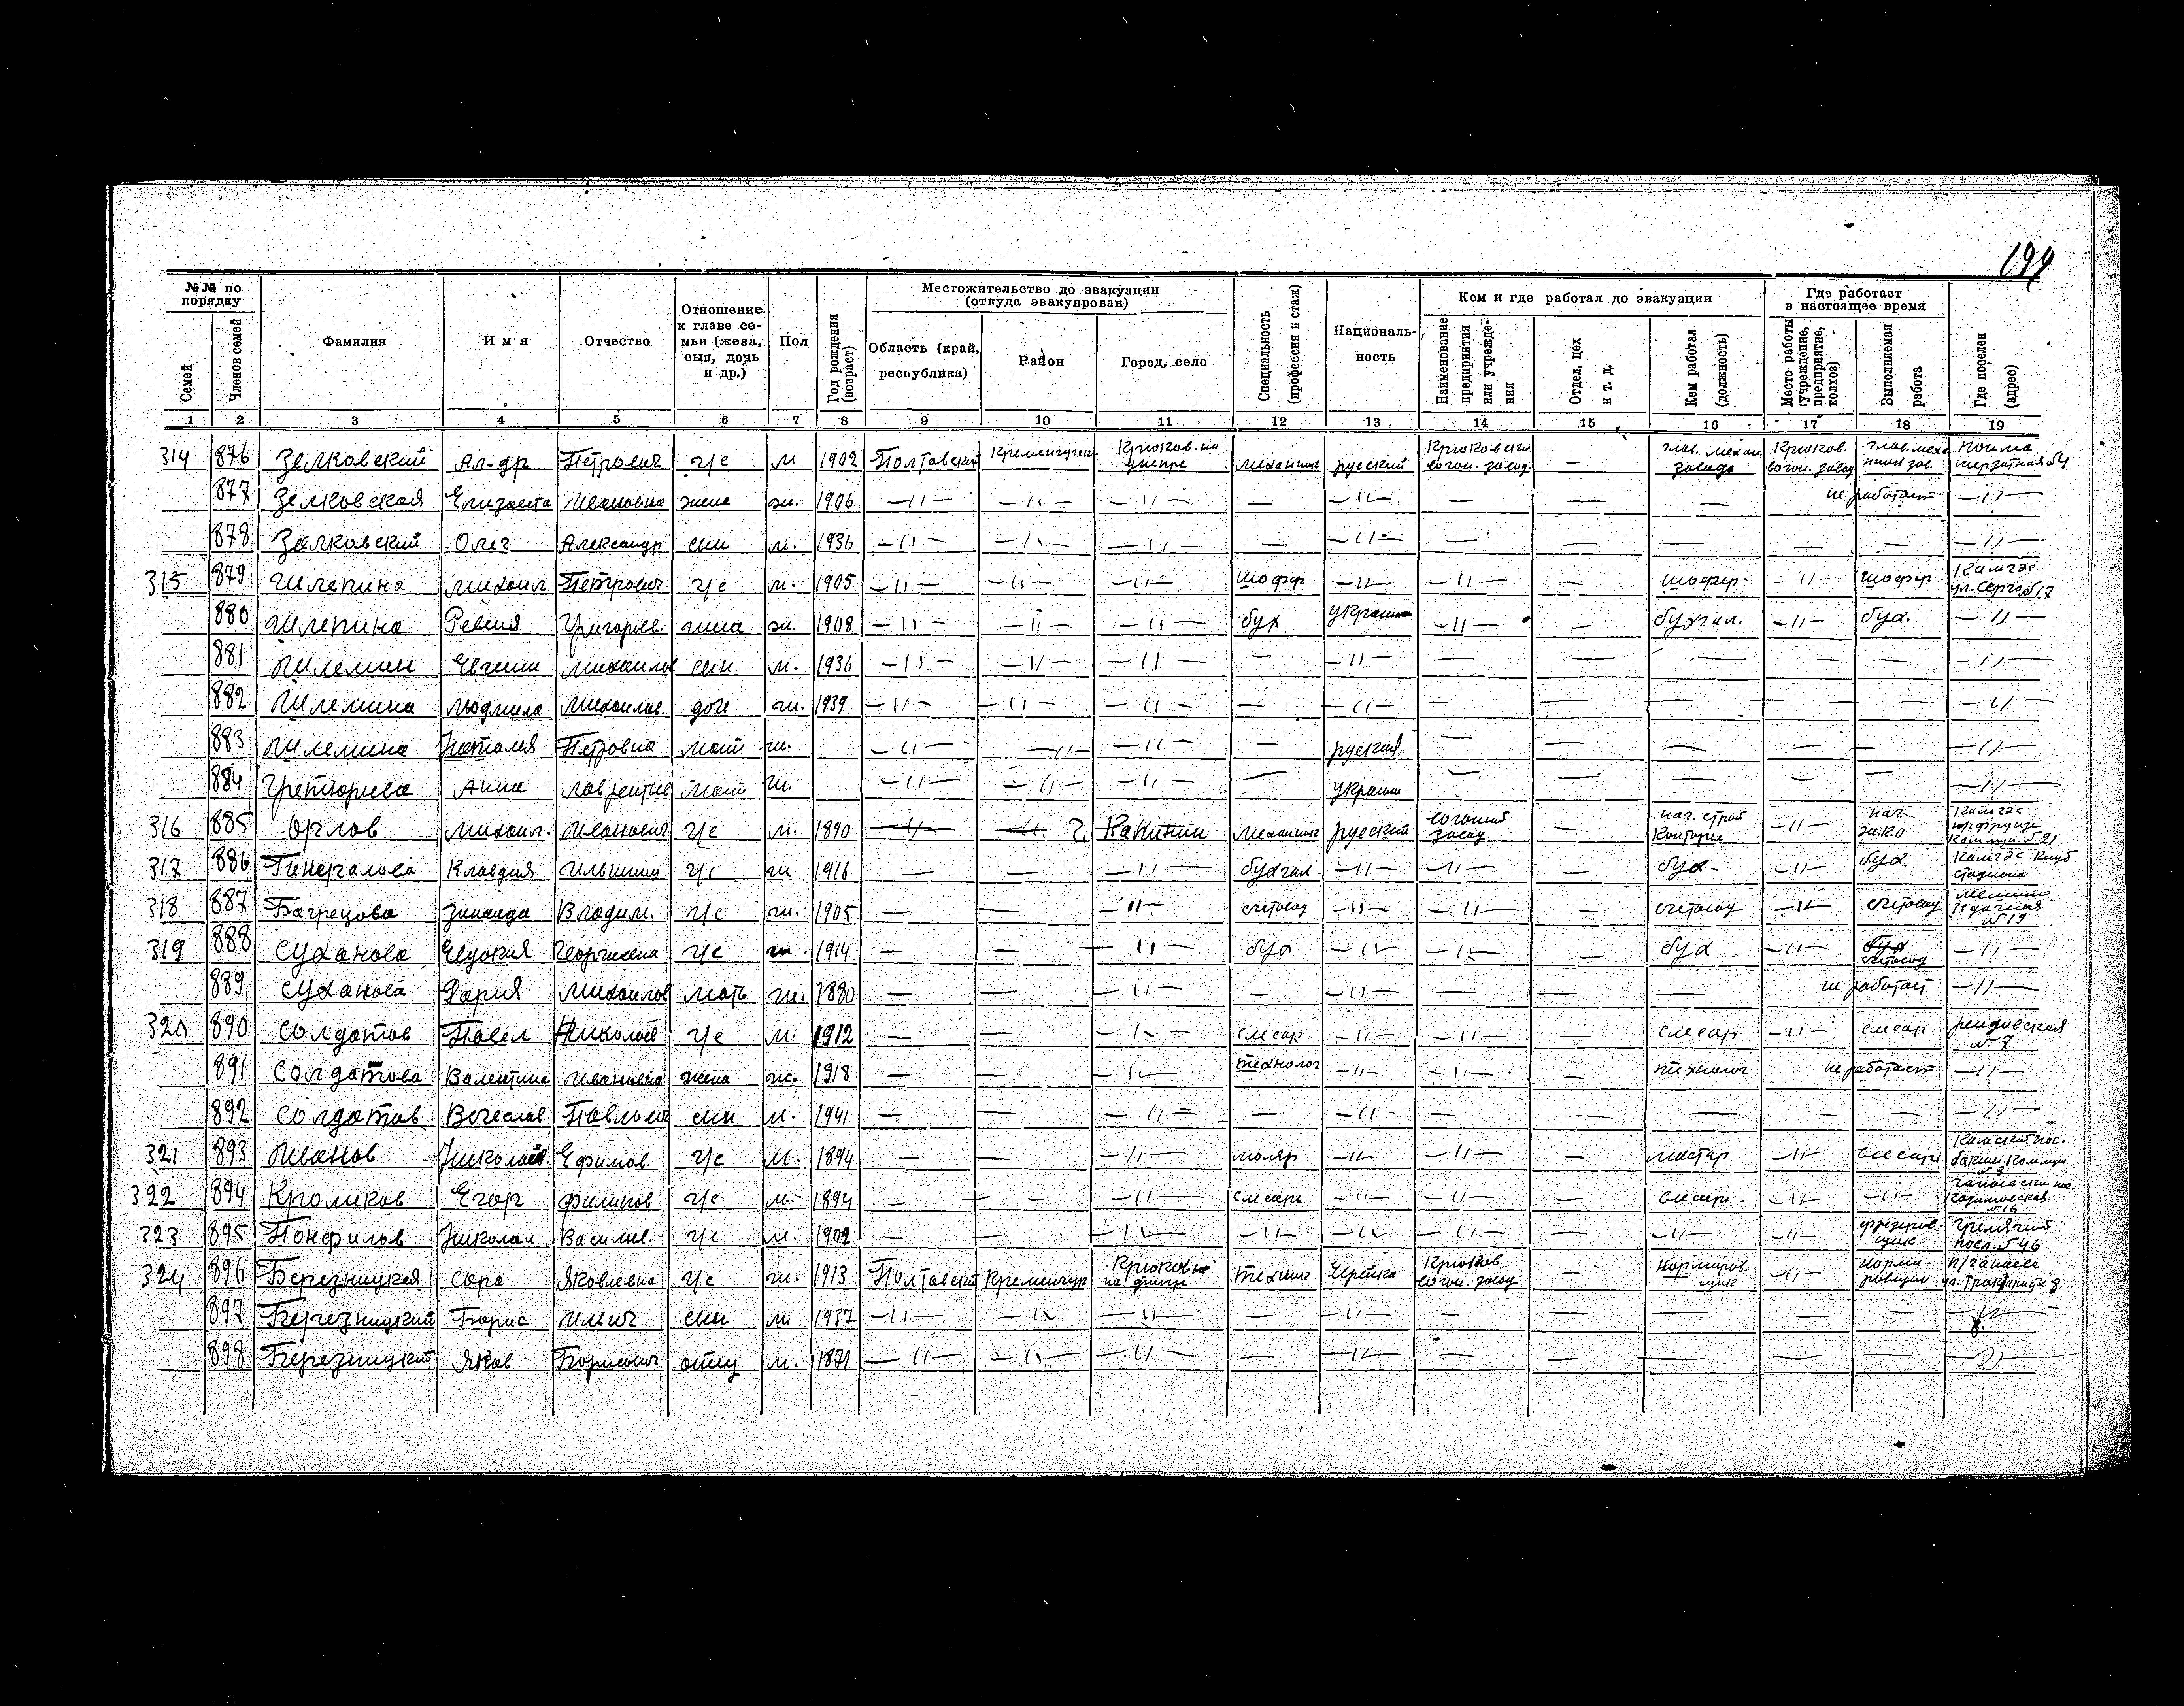 199
№№ по порядку
Семей
Членов семей
Фамилия
Имя
Отчество
Отношение к главе семьи (жена, сын, дочь и др.)
Пол
Год рождения (возраст)
Местожительство до эвакуации (откуда эвакуирован)
Область (край, республика)
Район
Город, село
Специальность (профессия и стаж)
Националь-ность
Кем и где работал до эвакуации
Наименование предприятия или учрежде-ния
Отдел, цех и т. д.
Кем работал (должность)
Где работает в настоящее время
Место работы (учреждение, предприятие, колхоз)
Выполняемая работа
Где поселен (адрес)
1 2 3 4 5 6 7 8 9 10 11 12 13 14 15 16 17 18 19
314 876 Зелковский Ал-др Петрович г/с м 1902 Полтавский Кременчугский Крюков. на Днепре механик русский Крюковский вогон. завод — глав. механ. завода Крюков. вогон. завод
877 Зелковская Елизавета Ивановна жена ж. 1906 —〃— —〃— —〃— — —〃— — — — не работает —〃—
878 Залковский Олег Александр сын м. 1936 —〃— —〃— —〃— — —〃— — — — — — —〃—
315 879 Шлепина Михаил Петрович г/с м. 1905 —〃— —〃— —〃— шофер —〃— —〃— — шофер —〃— шофер ул. Серго №17
880 Шлепина Григорьев. жена ж. 1908 —〃— —〃— —〃— бух Украин —〃— — бухгал. —〃— бух. —〃—
881 Шлемин Евгении Михаилов сын м. 1936 —〃— —〃— —〃— — —〃— — — — — — —〃—
882 Шлемина Людмила Михаилов. доч ж. 1939 —〃— —〃— —〃— — —〃— — — — — — —〃—
883 Шлемина Наталия Петровна мат ж. —〃— —〃— —〃— — руская — — — — — —〃—
884 Анна Лаврентив мат ж. —〃— —〃— —〃— — Украин — — — — — —〃—
316 885 Орлов Михаил. Иванович г/с м. 1890 —〃— —〃— г. Калинин механик русский вогоный завод — нач. строй конторы —〃— нач.
317 886 Генералова Клавдия г/с ж 1916 — — —〃— бухгал. —〃— —〃— — бух- —〃— бух. Клуб стадиона
318 887 Багрецова Зинаида Владим. г/с ж. 1905 — — —〃— счетовод —〃— —〃— — счетовод —〃— счетовод №19
319 888 Суханова Евдокия Георгиевна г/с ж. 1914 — — —〃— бух —〃— —〃— — бух —〃— бух счетовод —〃—
889 Суханова Дария Михаилов мать ж. 1880 — — —〃— — —〃— — — — не работает —〃—
320 890 Солдатов Павел Николаев г/с м. 1912 — — —〃— слесар —〃— —〃— — слесар —〃— слесар № 7
891 Солдатова Валентина Ивановна жена ж. 1918 — — —〃— технолог —〃— —〃— — технолог не работает —〃—
892 Солдатов Вечеслав Павлович сын м. 1941 — — —〃— — —〃— — — — — — —〃—
321 893 Иванов Николай Ефимов. г/с м. 1894 — — —〃— маляр —〃— —〃— — мастер —〃— слесарь
322 894 Кроликов Егор Филипов г/с м. 1894 — — —〃— слесарь —〃— —〃— — слесарь —〃— —〃— №16
323 895 Понфилов Николай Василев. г/с м. 1902 — — —〃— —〃— —〃— —〃— — —〃— —〃— фрезеров-щик посл. №46
324 896 Березницкая Сара Яковлевна г/с ж. 1913 Полтавский Кременчук Крюков на Днепре техник Еврейка Крюков вогон. завод — нормиров щик —〃— норми-ровщик
897 Березницкий Борис Ильич сын м 1937 —〃— —〃— —〃— — —〃— — — — — — —〃—
898 Березницкий Яков Борисович отец м. 1871 —〃— —〃— —〃— — —〃— — — — — — —〃—